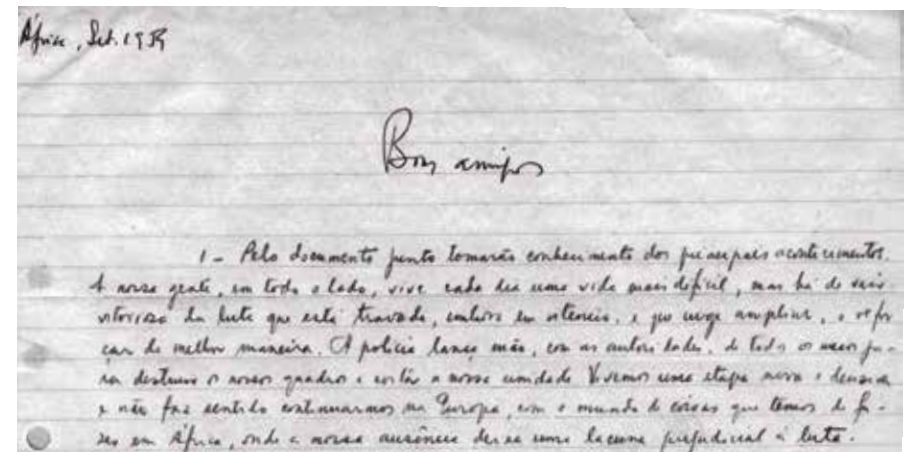 África, Set. 1959
Bons amigos
1 - Pelo documento junto tomarão conhecimento dos principais acontecimentos.
A nossa gente, em todo o lado, vive cada dia uma vida mais difícil, mas há de sair
vitoriosa da luta que está travada, embora em silêncio, e que urge ampliar, e refor
çar da melhor maneira. A polícia lança mão, com as autoridades, de todos os meios pa-
ra destruir os nossos quadros e cortar a nossa unidade. Vivemos uma etapa nova e decisiva
e não faz sentido continuarmos na Europa, com o mundo de coisas que temos de fa-
zer em África, onde a nossa ausência deixa uma lacuna prejudicial à luta.